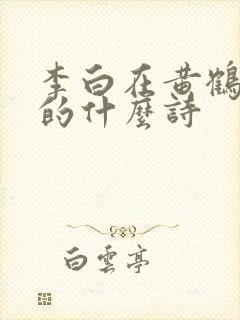 李白在黄鶴
的什麼詩
白雲亭